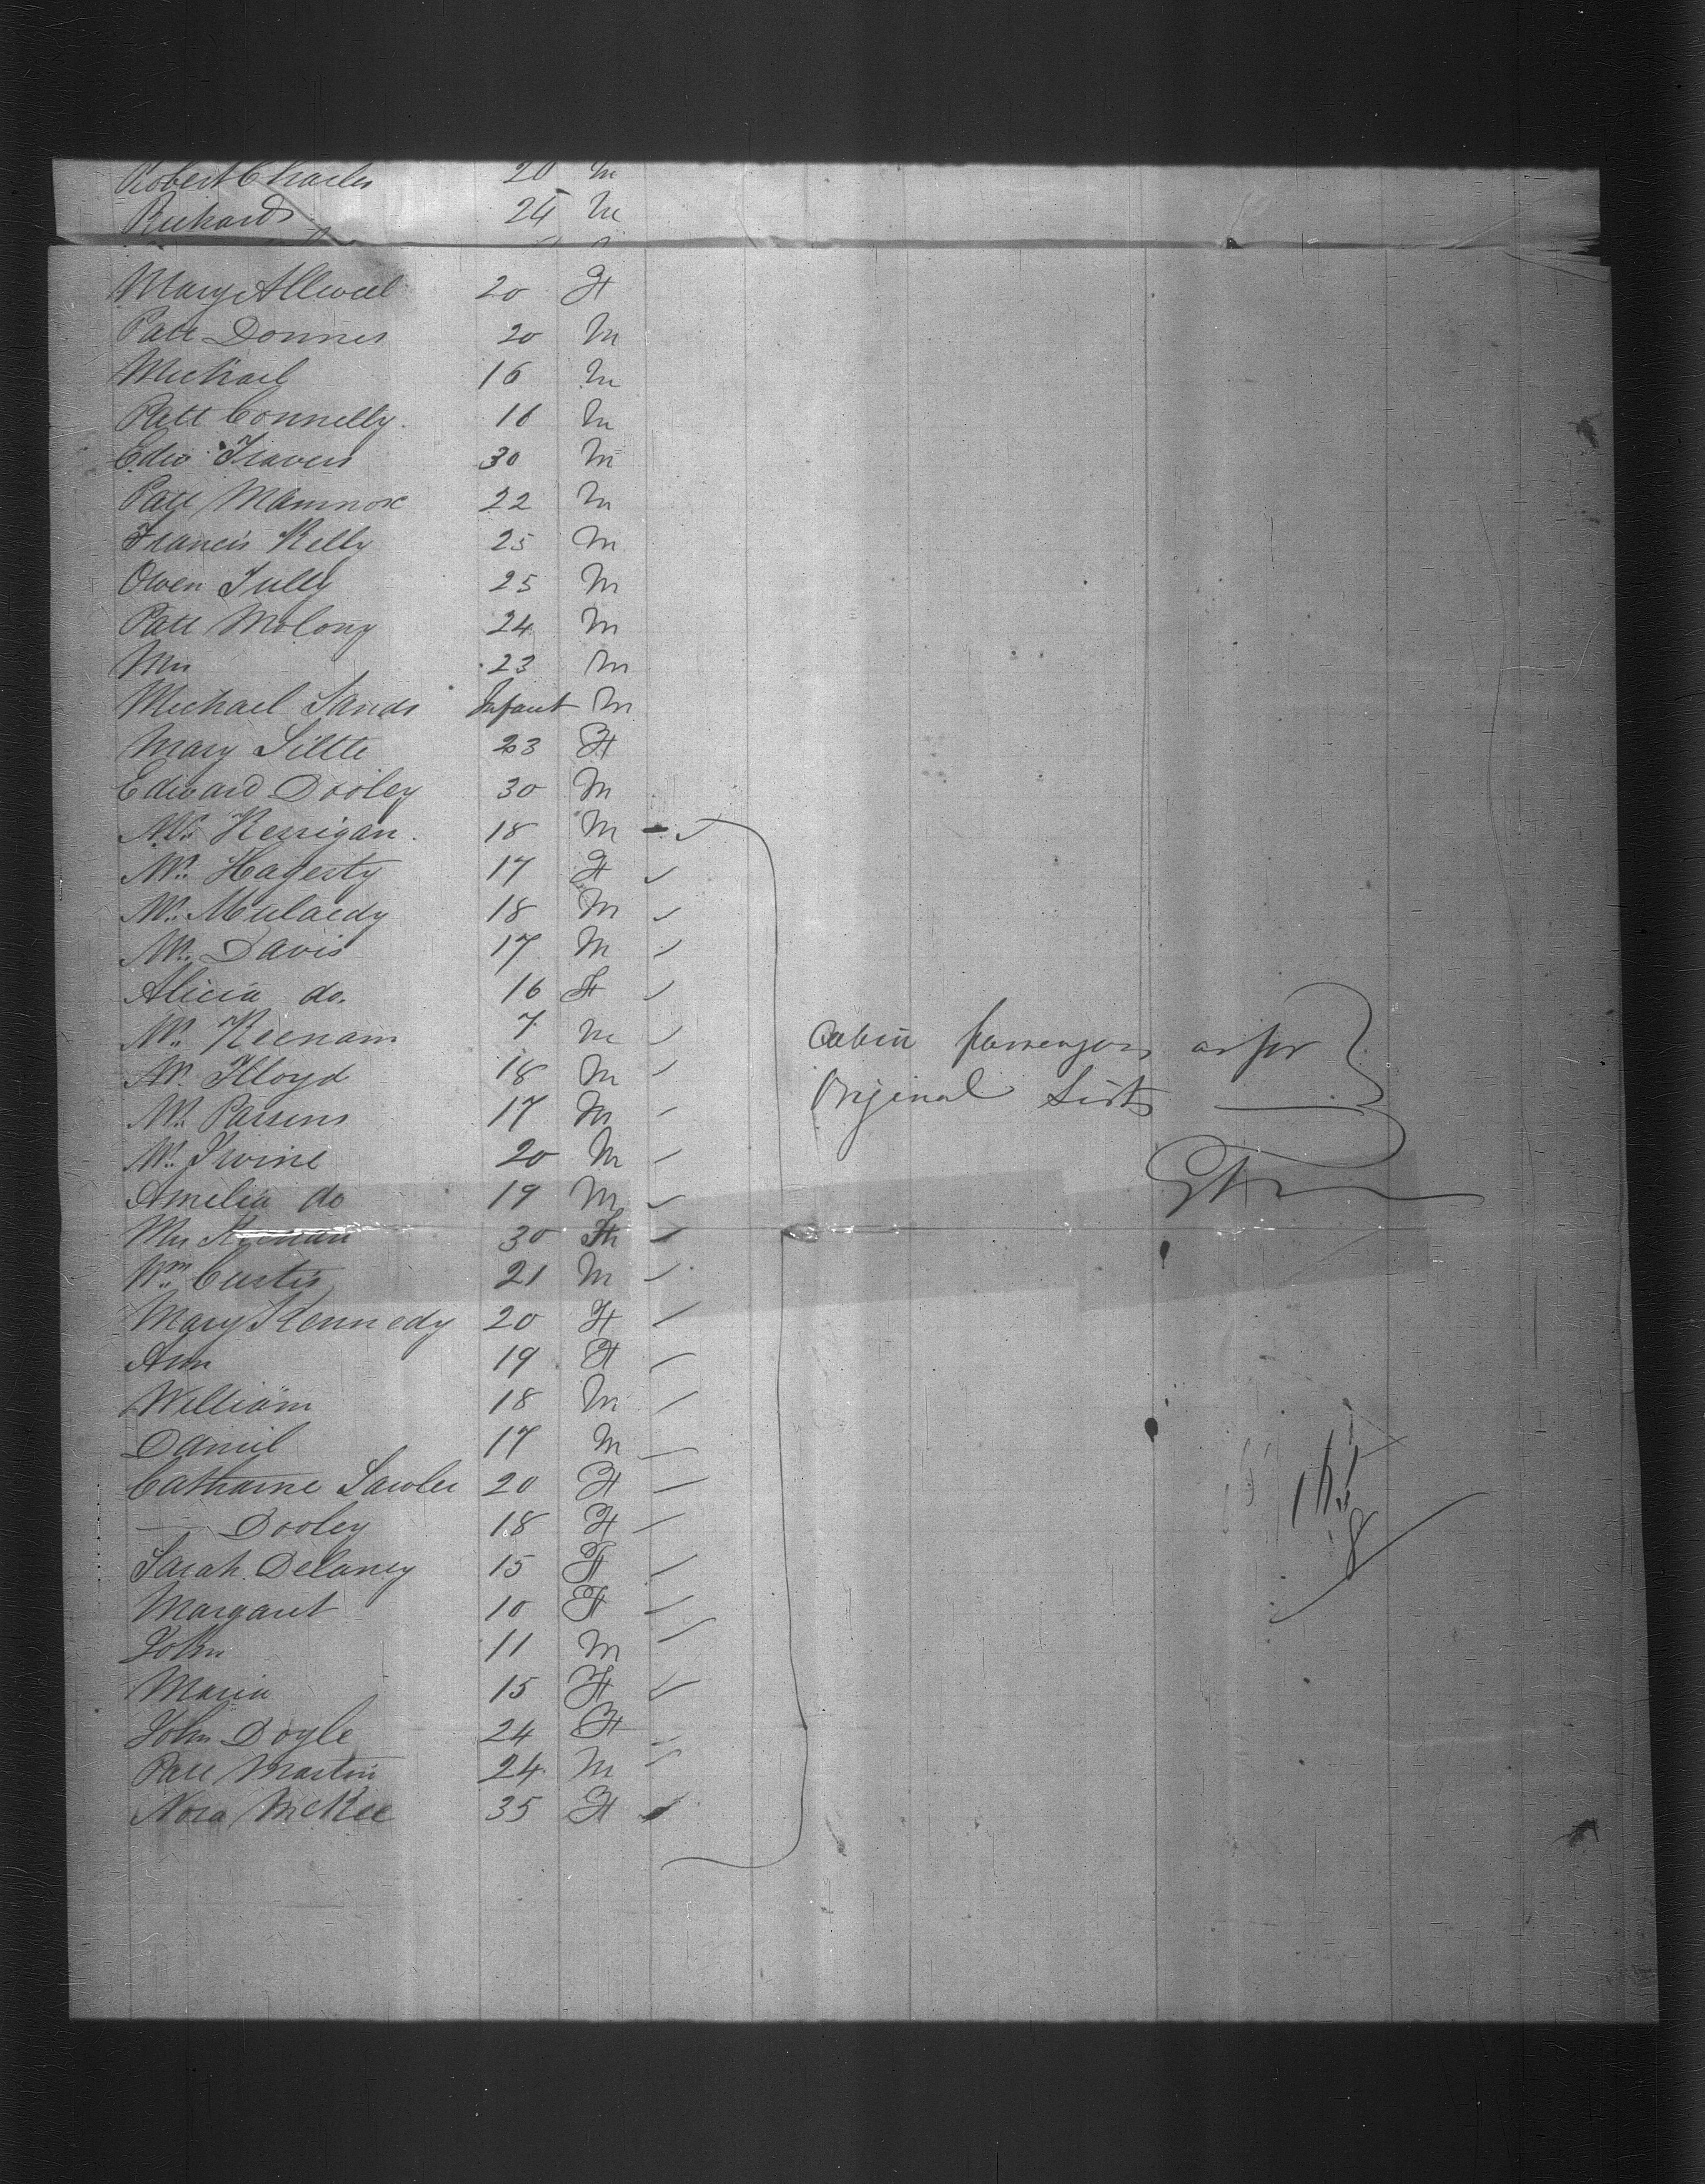 Robert Charles 20 M
Richards 24 M
Mary Allweel 20 F
Patt Donner 20 M
Michael 16 M
Patt Connelly. 16 M
Edw Travers 30 M
Patt Mamnox 22 M
Francis Kelly 25 M
Owen Tully 25 M
Patt Molony 24 M
Mrs 23 M
Michael Sands Infant M
Mary Little 23 F
Edward Dooley 30 M
Mr. Kerrigan. 18 M
Mr. Hagerty 17 F
Mr. Mulaedy 18 M
Mr. Davis 17 M
Alicia do. 16 F
Mr. Keenam 7 M
Mr. Floyd 18 M
Mr. Parsens 17 M
Mr. Irvine 20 M
Amelia do 19 M
Mrs Keenan 30
Wm. Curtis 21 M
Mary Kennedy 20 F
Ann 19 F
William 18 M
Daniel 17 M
Catharine Lawler 20 F
— Dooley 18 F
Sarah Delaney 15 F
Margaret 10 F
John 11 M
Maria 15 F
John Doyle 24 F
Patt Martin 24 M
Nora McKee 35 F
Cabin passengers as per
Original Lists